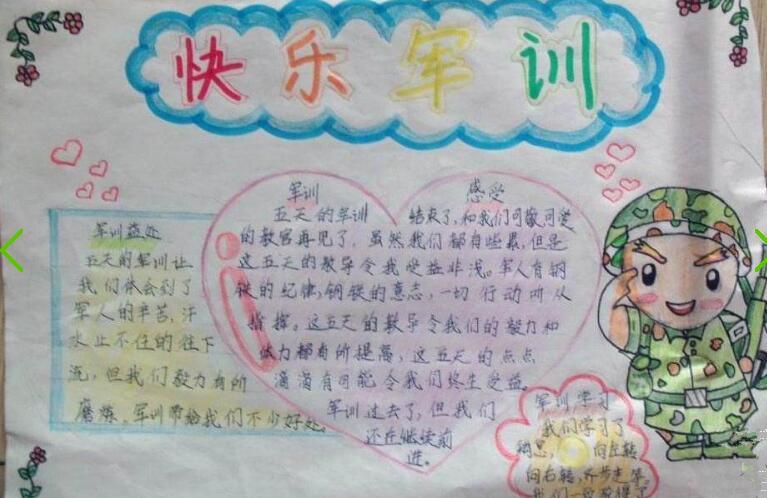 快乐军训
军训益处
五天的军训让
我们体会到了
军人的辛苦,汗
水止不住的往下
流,但我们毅力有所
磨炼。军训带给我们不少好处。
军训 感受
五天的军训 结束了,和我们可敬可爱
的教官再见了,虽然我们都有些累,但是
这五天的教导令我受益非浅。军人有钢
铁的纪律,钢铁的意志,一切行动听从
指挥。这五天的教导令我们的毅力和
体力都有所提高,这五天的点点
滴滴有可能令我们终生受益。
军训过去了,但我们
还在继续前
进。
军训学习
我们学习了
稍息, 向左转
向右转,齐步走等。
我们